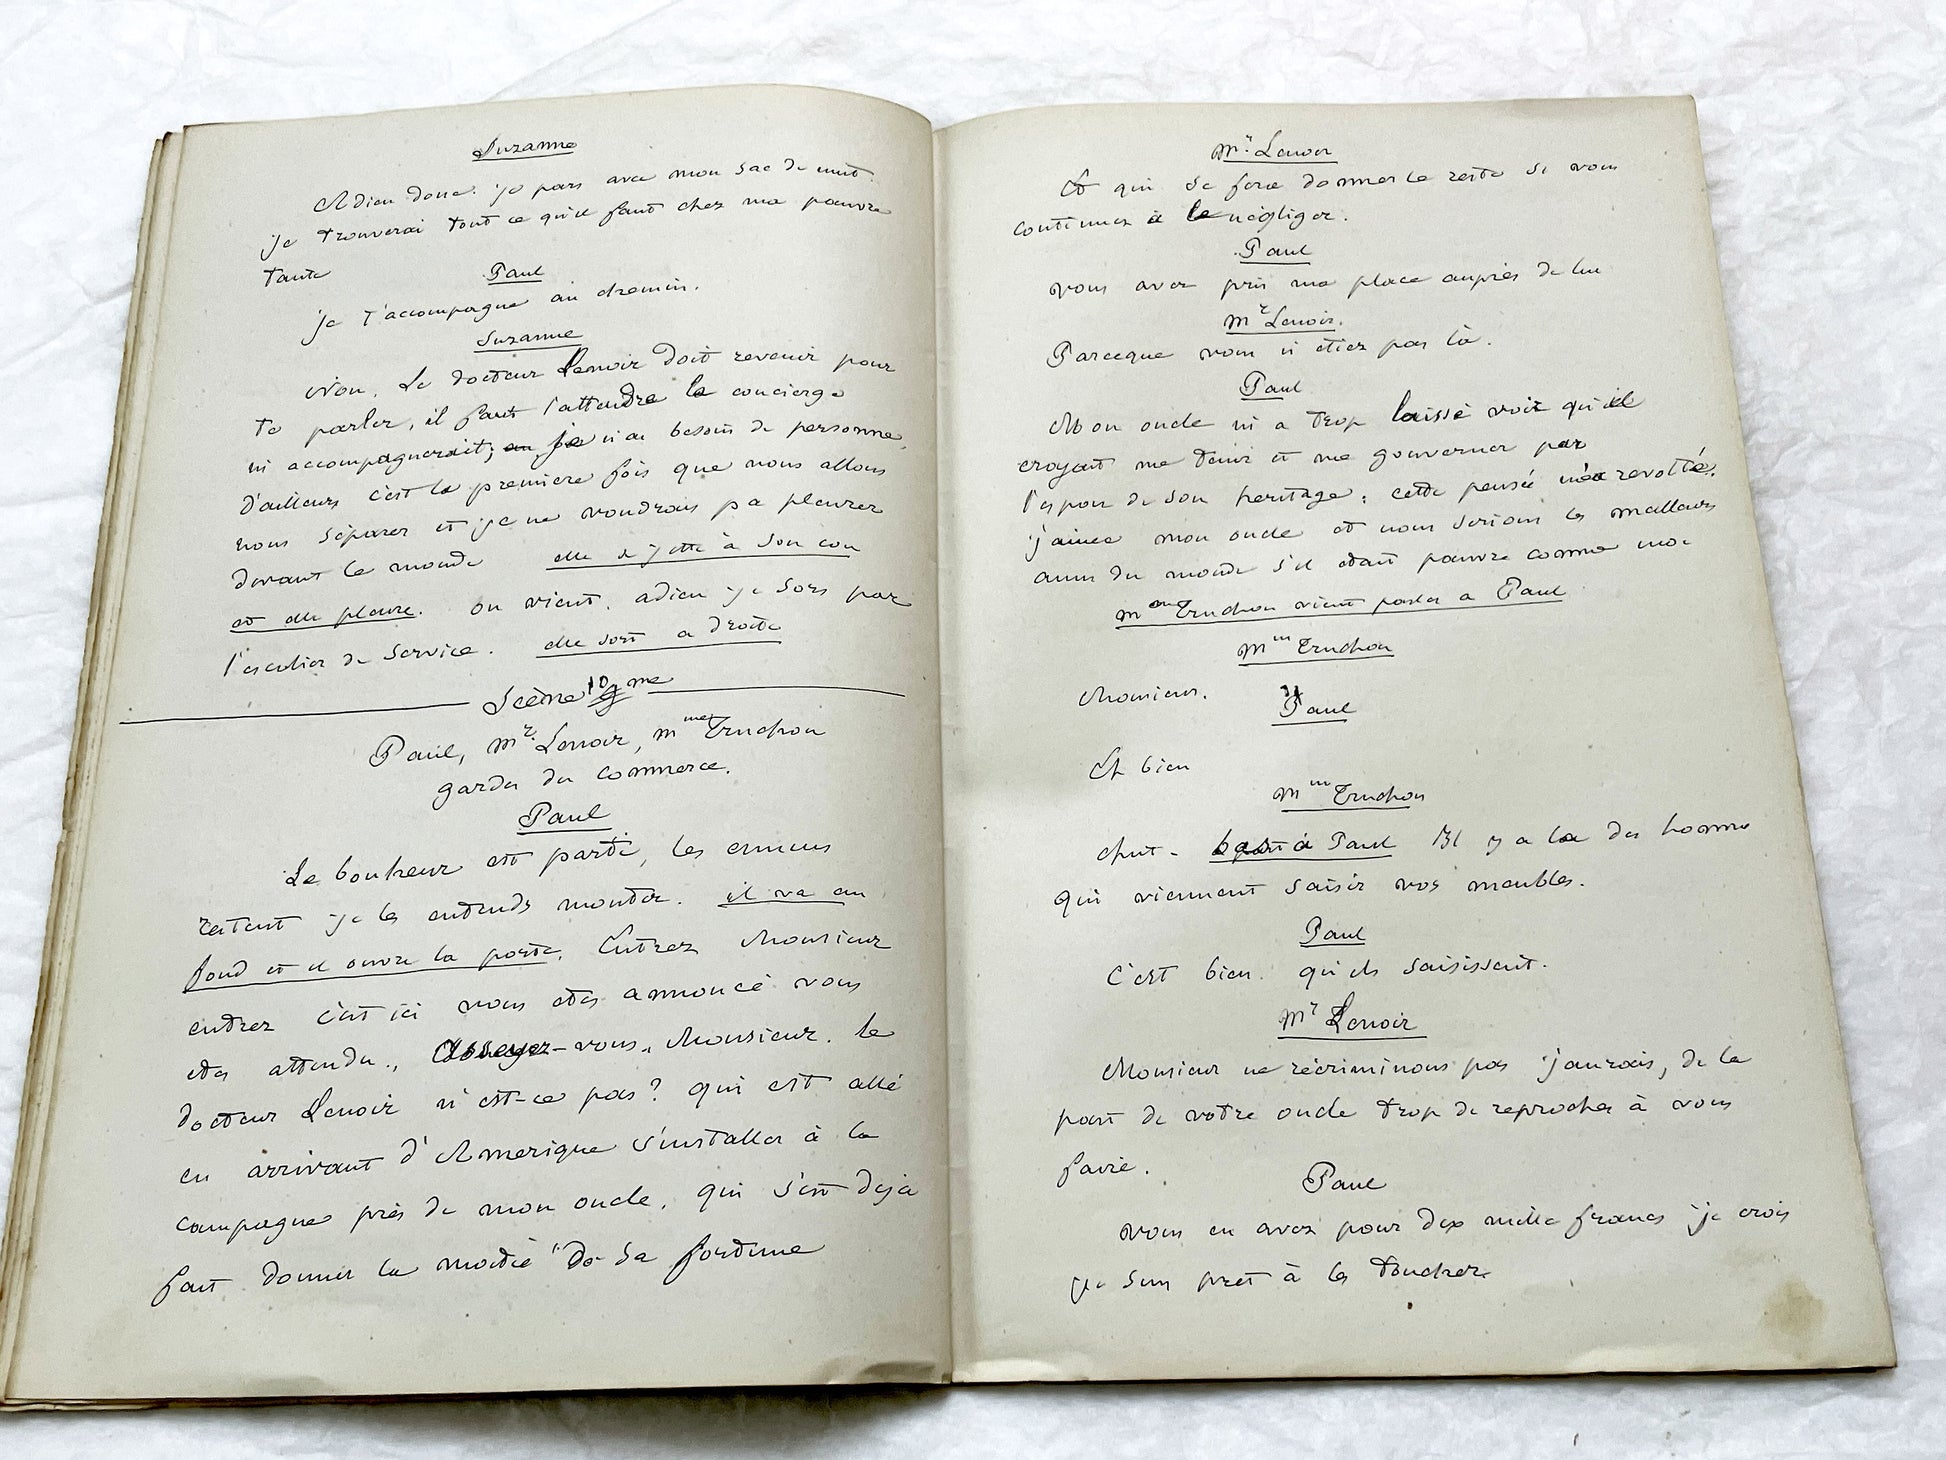 Suzanne
Adieu donc. je pars avec mon sac de nuit.
je trouverai tout ce qu'il faut chez ma pauvre
tante
Paul
je t'accompagne au chemin.
Suzanne
Non. Le docteur Lenoir doit revenir pour
te parler, il faut l'attendre la concierge
m'accompagnerait; je n'ai besoin de personne,
d'ailleurs c'est la premiere fois que nous allons
nous séparer et je ne voudrais pa pleurer
devant le monde elle se jette à son cou
et elle pleure. on vient. adieu je sors par
l'escalier de service. elle sort a droite
Scène 10me
Paul, Mr. Lenoir, Mme Truchon
gardes du commerce.
Paul
Le bonheur est parti, les ennuis
restent je les entends monter. il va au
fond et il ouvre la porte. Entrez Monsieur
entrez c'est ici vous etes annoncé vous
etes attendu., Asseyez-vous. Monsieur. le
docteur Lenoir n'est-ce pas? qui est allé
en arrivant d'Amerique s'installer à la
campagne près de mon oncle. qui s'est deja
fait donner la moitié de sa fortune
Mr. Lenoir
Et qui se fera donner le reste si vous
continuez à le négliger.
Paul
vous avez pris ma place auprès de lui
Mr Lenoir.
Parceque vous n'etiez pas là.
Paul
Mon oncle m'a trop laissé voir qu'il
croyait me tenir et me gouverner par
l'espoir de son heritage: cette pensée m'a revolté.
j'aimee mon oncle et nous serions les meilleurs
amis du monde s'il etait pauvre comme moi
Mme Truchon vient parler a Paul
Mme Truchon
Monsieur.
Paul
Et bien
Mme Truchon
chut - bas à Paul Il y a la des homme
qui viennent saisir vos meubles.
Paul
C'est bien. qu'ils saisissent.
Mr Lenoir
Monsieur ne récriminons pas j'aurais, de la
part de votre oncle trop de reproches à vous
faire.
Paul
vous en avez pour dix mille francs je crois
je suis pret à les toucher